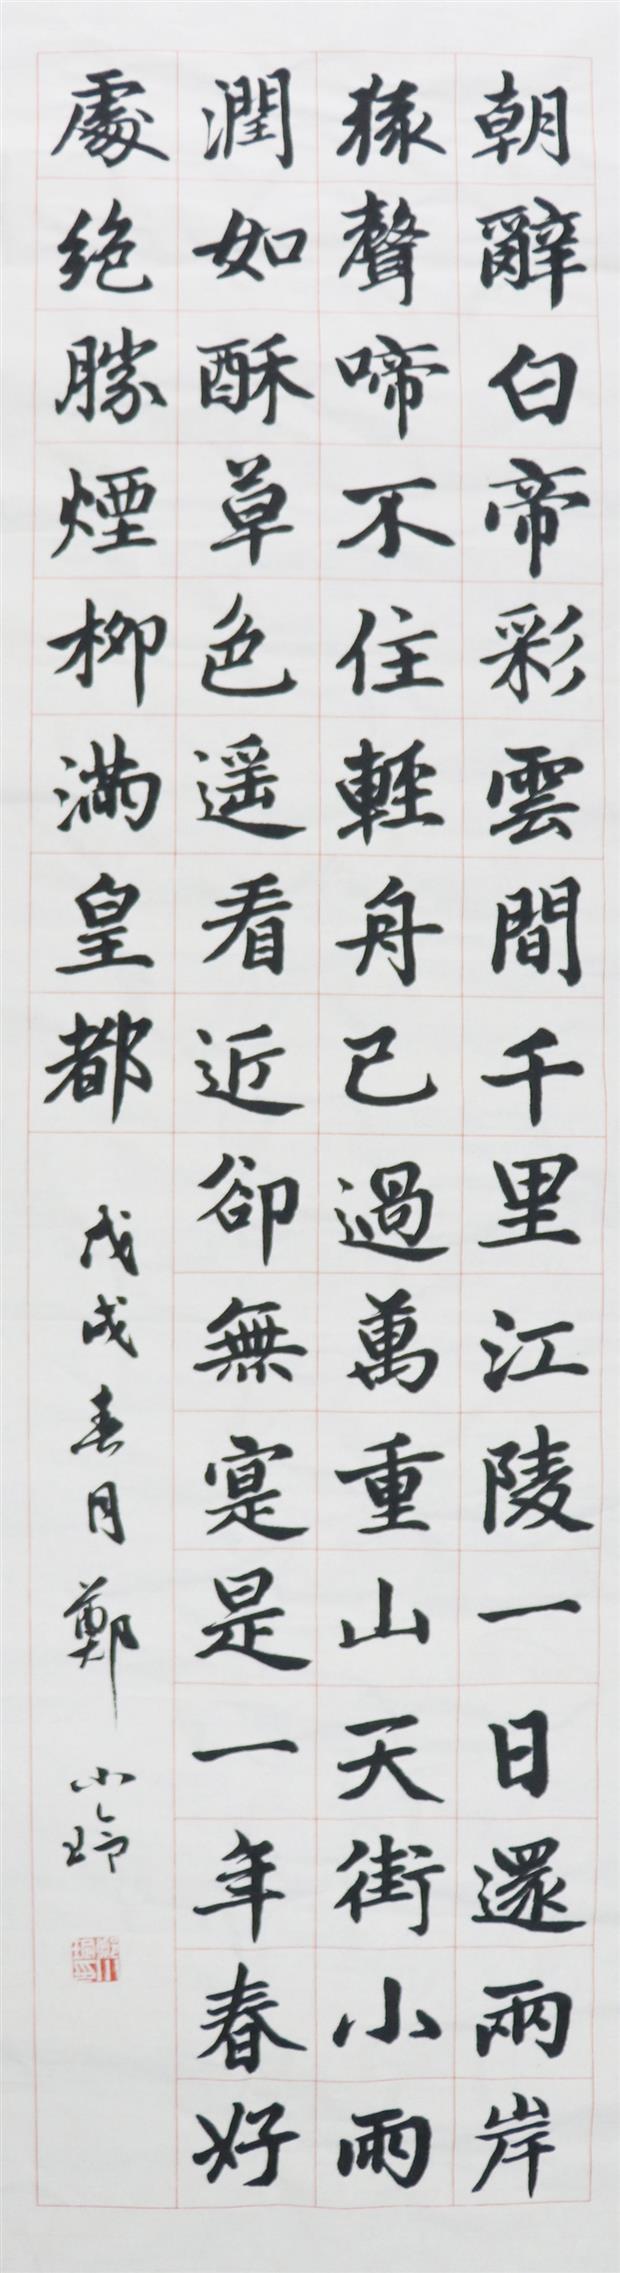 朝辭白帝彩雲間千里江陵一日還兩岸
猿聲啼不住輕舟已過萬重山天街小雨
潤如酥草色遥看近卻無寔是一年春好
處絶勝煙柳滿皇都
戊戌春月鄭小玲